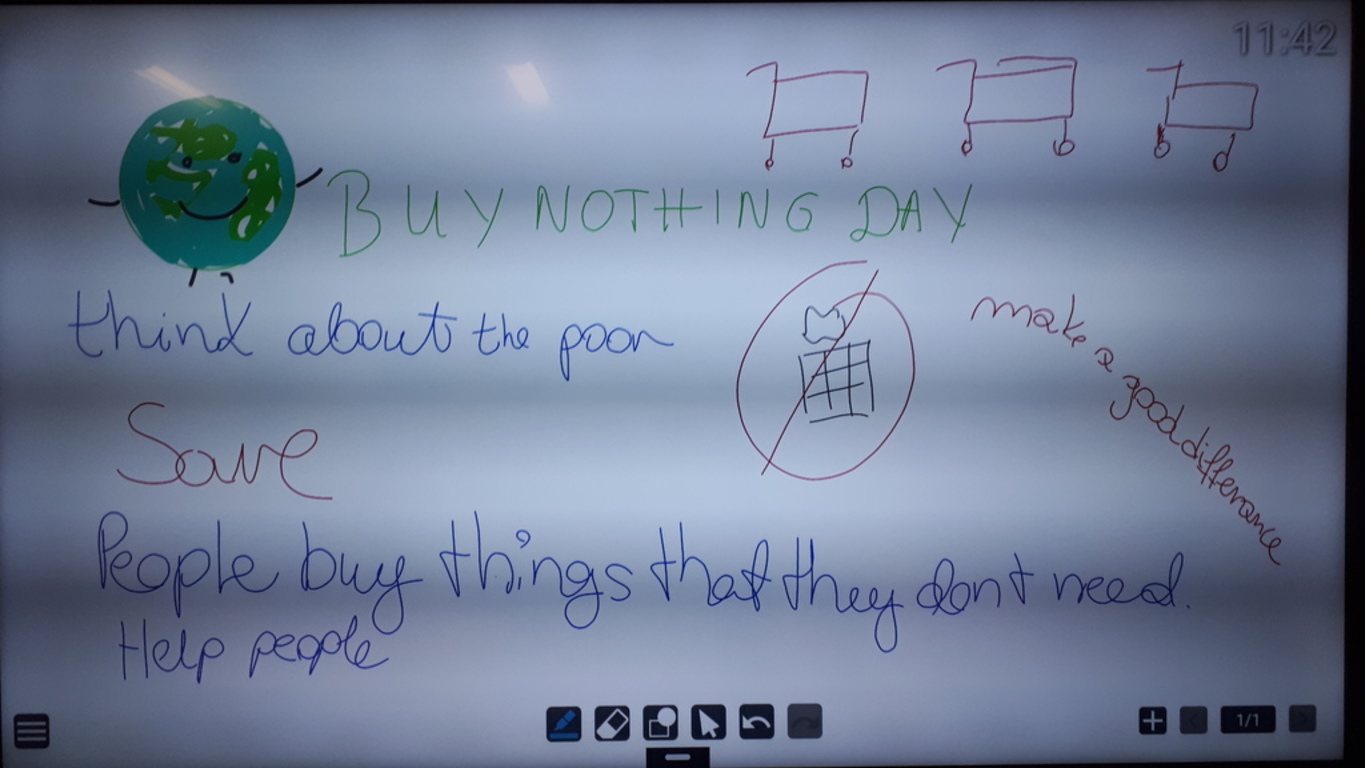 11:42
BUY NOTHING DAY
think about the poor
make a good differance
Save
People buy things that they dont need.
Help people
1/1